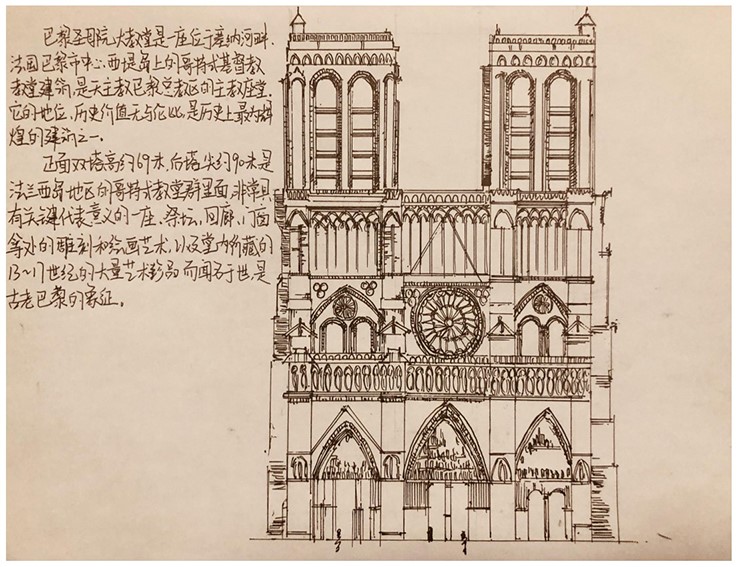 巴黎圣母院大教堂是一座位于塞纳河畔、
法国巴黎市中心、西堤岛上的哥特式基督教
教堂建筑,是天主教巴黎总教区的主教座堂。
它的地位、历史价值无与伦比,是历史上最为辉
煌的建筑之一。
正面双塔高约69米,后塔尖约90米,是
法兰西岛地区的哥特式教堂群里面,非常具
有关键代表意义的一座。祭坛、回廊、门窗
等处的雕刻和绘画艺术,以及堂内所藏的
13~17世纪的大量艺术珍品而闻名于世,是
古老巴黎的象征。